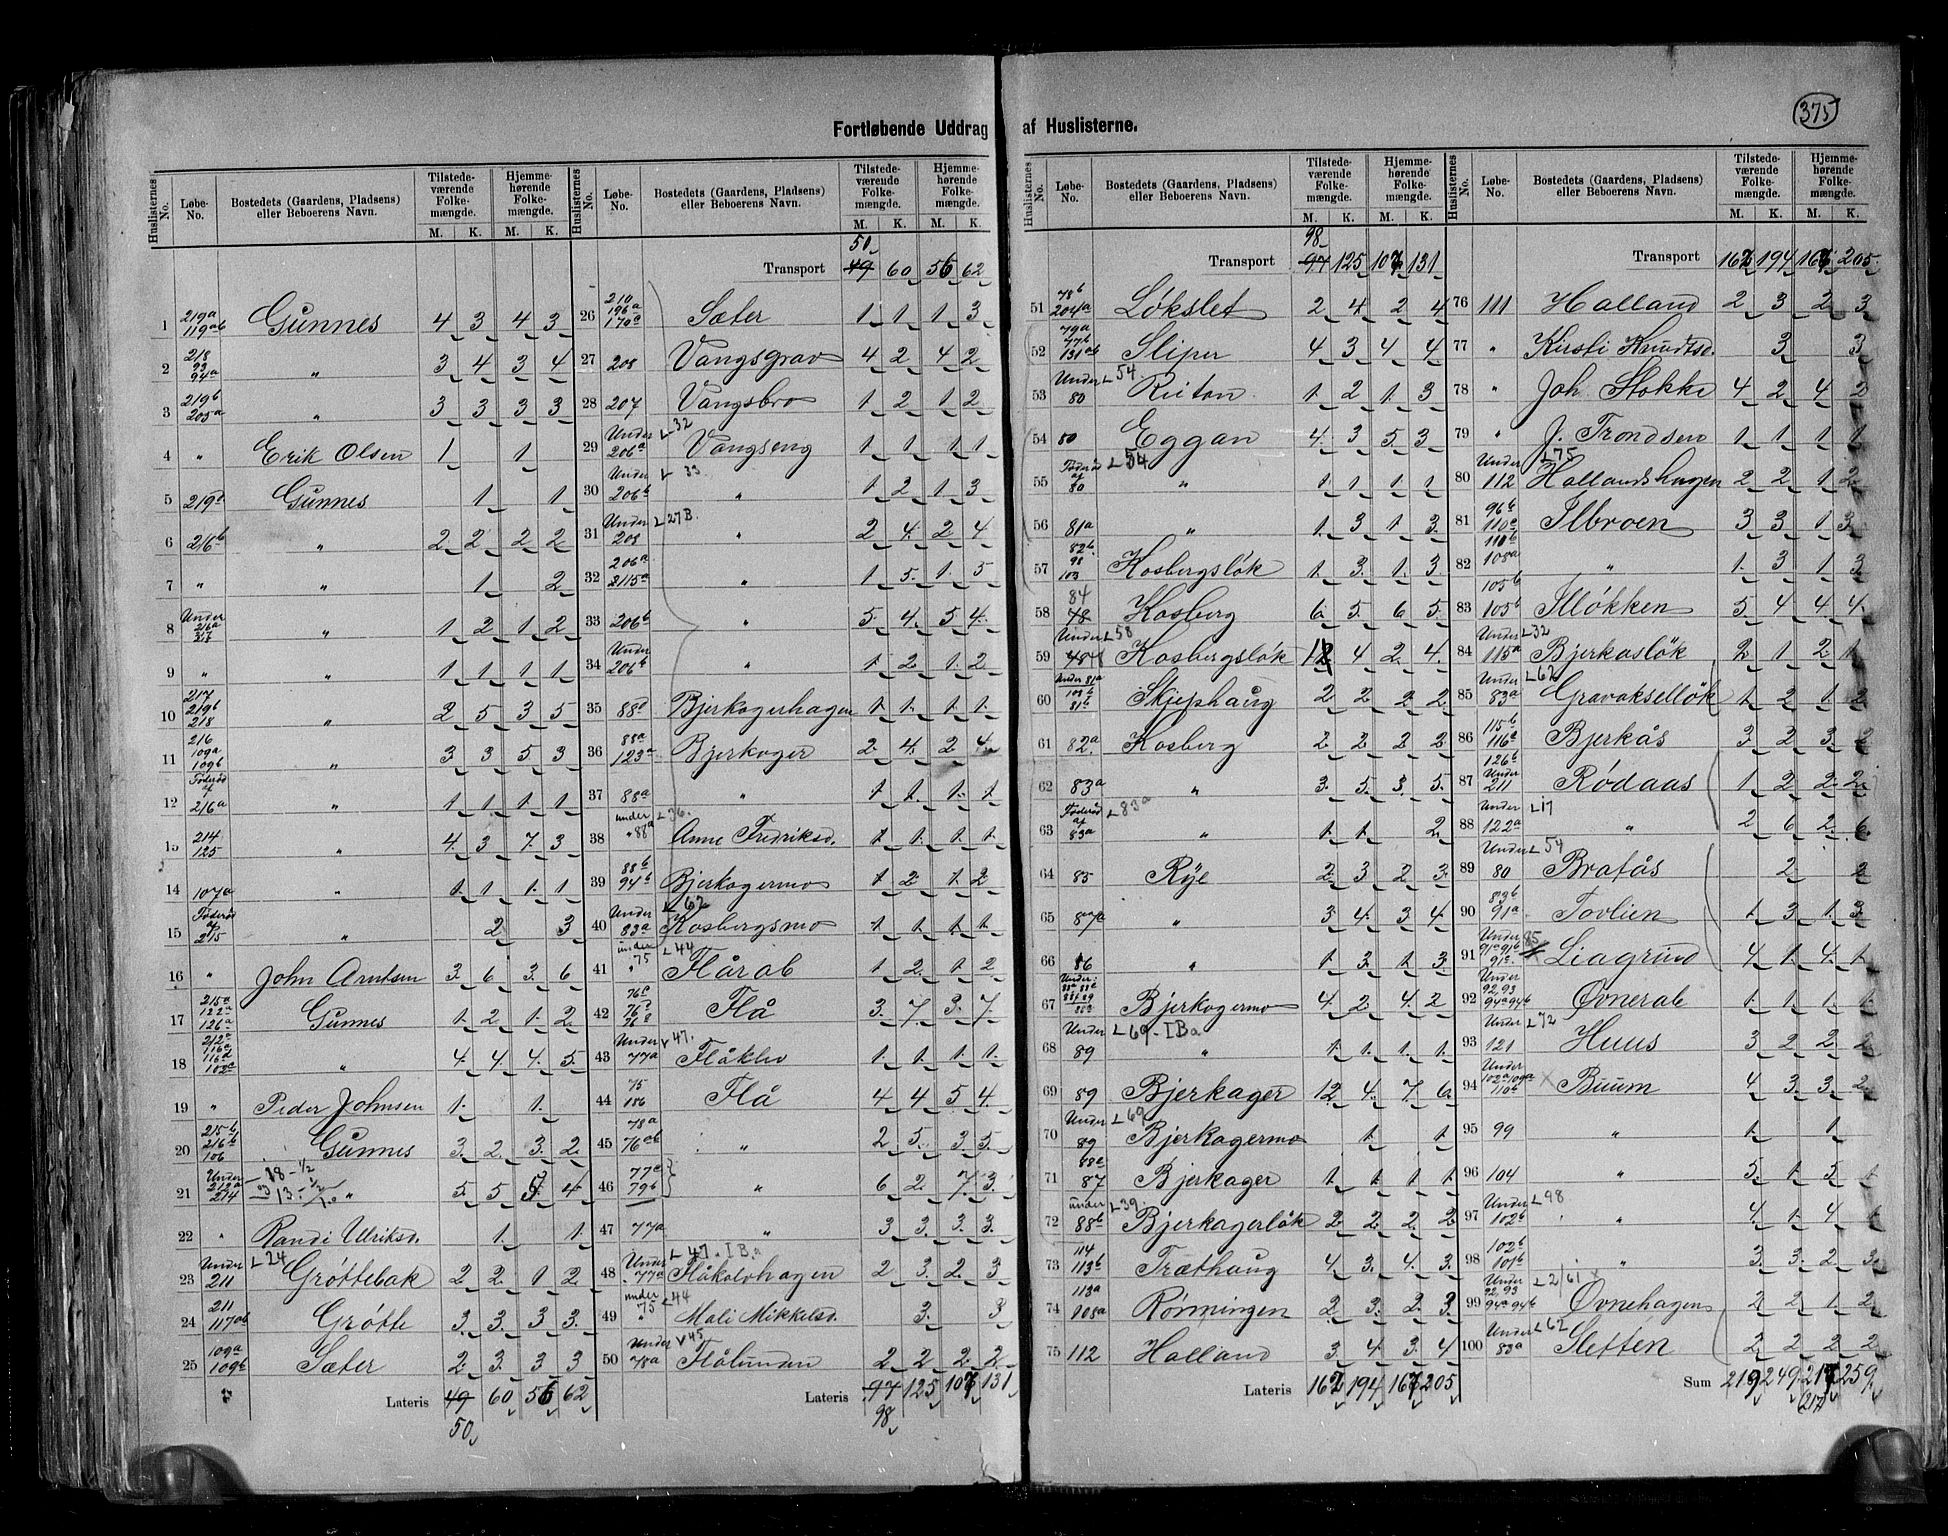 375
Fortløbende Uddrag af Huslisterne.
Huslisternes No. Løbe-No. Bostedets (Gaardens, Pladsen) eller Beboerens Navn. Tilstedeværende Folkemængde. M. K. Hjemmehørende Folkemængde. M. K.
1 219a 119ab Gunnes 4 3 4 3
2 218 93 94a " 3 4 3 4
3 219b 205a " 3 3 3 3
4 " Erik Olsen 1 1
5 219c Gunnes 1 1
6 216b " 2 2 2 2
7 " " 1 2
8 Under 216a 217 " 1 2 1 2
9 " " 1 1 1 1
10 217 219b 218 " 2 5 3 5
11 216 109a 109b " 3 3 5 3
12 Føderåd af 216a " 1 1 1 1
13 214 125 " 4 3 7 3
14 107a " 1 1 1 1
15 Føderåd af 215 " 2 3
16 " John Arntsen 3 6 3 6
17 215a 122a 126a Gunnes 1 2 1 2
18 212a 116a 116d 102a " 4 4 4 5
19 " Peder Johnsen 1 1
20 215b 216b 106 Gunnes 3 2 3 2
21 Under 212a 214 " 5 5 5 4
22 " Randi Ulriksd. 1 1
23 Under 211 L24 Grøttebak 2 2 1 2
24 211 117ab Grøtte 3 3 3 3
25 109a 109b Sæter 2 3 3 3
Lateris 49 60 56 62
50
Huslisternes No. Løbe-No. Bostedets (Gaardens, Pladsen) eller Beboerens Navn. Tilstedeværende Folkemængde. M. K. Hjemmehørende Folkemængde. M. K.
50
Transport 49 60 56 62
26 210 196a 170a Sæter 1 1 1 3
27 208 Vangsgrav 4 2 4 2
28 207 Vangsbro 1 2 1 2
29 Under 206a L32 Vangseng 1 1 1 1
30 Under 206b L33 " 1 2 1 3
31 Under 208 L27B. " 2 4 2 4
32 206a 2115a " 1 5 1 5
33 206b " 5 4 5 4
34 Under 206b " 1 2 1 2
35 88d Bjerkagerhagen 1 1 1 1
36 88a 123a Bjerkager 2 4 2 4
37 88a " 1 1 1 1
38 under 88a L36. Anne Fredriksd. 1 1 1 1
39 88b 94b Bjerkagermo 1 2 1 2
40 Under 83a L62 Kosbergsmo 1 1 1 1
41 under 75 L44 Flårab 1 2 1 2
42 76c 76d 76e Flå 3 7 3 7
43 Under 77a 47. Flåklev 1 1 1 1
44 75 186 Flå 4 4 5 4
45 78a 76ab " 2 5 3 5
46 77c 79b " 6 2 7 3
47 77a " 3 3 3 3
48 Under 77a L47. I B.a Flåkolvhagen 2 3 2 3
49 under 75 L44 Mali Mikkelsd. 3 3
50 Under 78a 45 Flålunden 2 2 2 2
Lateris 97 125 107 131
98
Huslisternes No. Løbe-No. Bostedets (Gaardens, Pladsen) eller Beboerens Navn. Tilstedeværende Folkemængde. M. K. Hjemmehørende Folkemængde. M. K.
98
Transport 97 125 107 131
51 78b 204a Løkslet 2 4 2 4
52 79a 77b 131ab Sliper 4 3 4 4
53 Under 80 L54 Reitan 1 2 1 3
54 80 Eggan 4 3 5 3
55 Føderåd af 80 L54 " 1 1 1 1
56 81a " 1 3 1 3
57 82b 98 103 Kosbergsløk 1 3 1 3
58 84 78 Kosberg 6 5 6 5
59 Under 48 L58 Kosbergsløk 4 2 4
60 Under 81a 108b 81b Skjephaug 2 2 2 2
61 82a Kosberg 2 2 2 2
62 83a " 3 5 3 5
63 Føderåd af 83a L83a " 1 1 2
64 85 Rye 2 3 2 3
65 87a " 3 4 3 4
66 86 " 1 3 1 3
67 Under: Bjerkagermo 4 2 4 2
68 Under 89 L69-I B a " 1 1 1 1
69 89 Bjerkager 12 4 7 6
70 Under 89 L69 Bjerkagermo 1 1
71 88c 87 Bjerkager 1 1 1 1
72 under 88b L39. Bjerkagerløk 2 2 2 2
73 114 113b Træthaug 4 3 4 3
74 113a 108a Rønningen 2 3 2 3
75 112 Halland 3 4 3 4
Lateris 167 194 167 205
Huslisternes No. Løbe-No. Bostedets (Gaardens, Pladsen) eller Beboerens Navn. Tilstedeværende Folkemængde. M. K. Hjemmehørende Folkemængde. M. K.
Transport 167 194 167 205
76 111 Halland 2 3 2 3
77 " Kirsti Knudtsd. 3 3
78 " Joh. Stokke 4 2 4 2
79 " J. Trondsen 1 1 1 1
80 Under 112 L75 Hallandshagen 2 2 1 2
81 96b 110a Ilbroen 3 3 1 3
82 110b 108a " 1 3 1 3
83 105b 105b Illøkken 5 4 4 4
84 Under 115a L32 Bjerkasløk 2 1 2 1
85 Under 83a L62 Gravakselløk 1 2 1 2
86 115b 116a Bjerkås 3 2 3 2
87 126b Under 211 Rødaas 1 2 2 2
88 Under 122a L17 " 2 6 2 6
89 Under 80 L54 Bratås 2 2
90 83b 91a Tovlien 1 3 1 3
91 Under 91a 91b 91c 85 Liagrind 4 1 4 1
92 Under 92,93 94a 94b Øvnerab 1 1 1 1
93 Under 121 L72 Huus 3 2 2 2
94 Under 102a 109a 110b Buum 4 3 3 2
95 99 " 1 1
96 104 " 5 1 5 1
97 Under 102b L98 " 4 1 4 1
98 102b 101b " 3 3 2 3
99 Under 92,93 94a 94b L2/61 Øvnehagen 2 2 1 2
100 Under 83a L62 Sletten 2 2 2 2
Sum 219 249 217 259
(217)